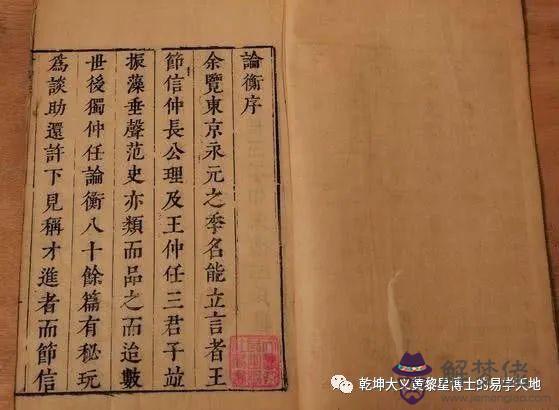 論衡序
余覽東京永元之季名能立言者王
節信仲長公理及王仲任三君子並
振藻垂聲范史亦類而品之而迨數
世後獨仲任論衡八十餘篇有秘玩
為談助還許下見稱才進者而節信
解梦佬
jiemenglao.com
乾坤大义黄黎星博士的易学天地